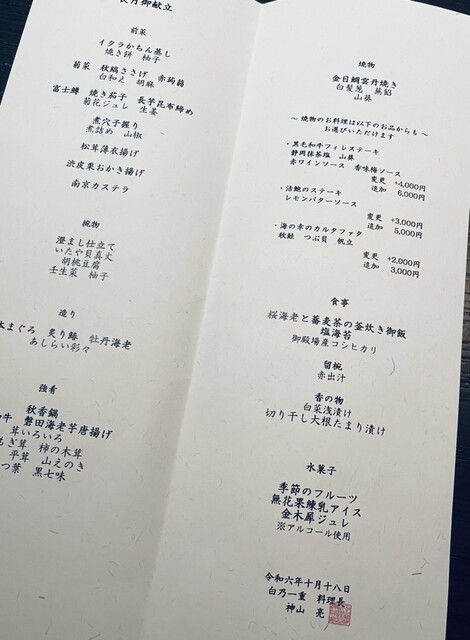 長月御献立
前菜
イクラかちん蒸し
焼き餅 柚子
菊菜 秋縞ささげ 赤蒟蒻
白和え 胡麻
富士鱒 焼き茄子 長芋昆布締め
菊花ジュレ 生姜
煮穴子握り
煮詰め 山椒
松茸薄衣揚げ
渋皮栗おかき揚げ
南京カステラ
椀物
澄まし仕立て
いたや貝真丈
胡桃豆腐
壬生菜 柚子
造り
本まぐろ 炙り鰆 牡丹海老
あしらい彩々
強肴
秋香鍋
牛 磐田海老芋唐揚げ
茸いろいろ
もぎ茸 柿の木茸
平茸 山えのき
つ葉 黒七味
焼物
金目鯛雲丹焼き
白髪葱 蕪餡
山葵
〜 焼物のお料理は以下のお品からも 〜
お選びいただけます
・黒毛和牛フィレステーキ
静岡抹茶塩 山葵
赤ワインソース 香味梅ソース
変更 +4,000円
追加 6,000円
・活鮑のステーキ
レモンバターソース
変更 +3,000円
追加 5,000円
・海の幸のカルタファタ
秋鮭 つぶ貝 帆立
変更 +2,000円
追加 3,000円
食事
桜海老と蕎麦茶の釜炊き御飯
塩海苔
御殿場産コシヒカリ
留椀
赤出汁
香の物
白菜浅漬け
切り干し大根たまり漬け
水菓子
季節のフルーツ
無花果練乳アイス
金木犀ジュレ
※アルコール使用
令和六年十月十八日
白乃一重 料理長
神山 亮